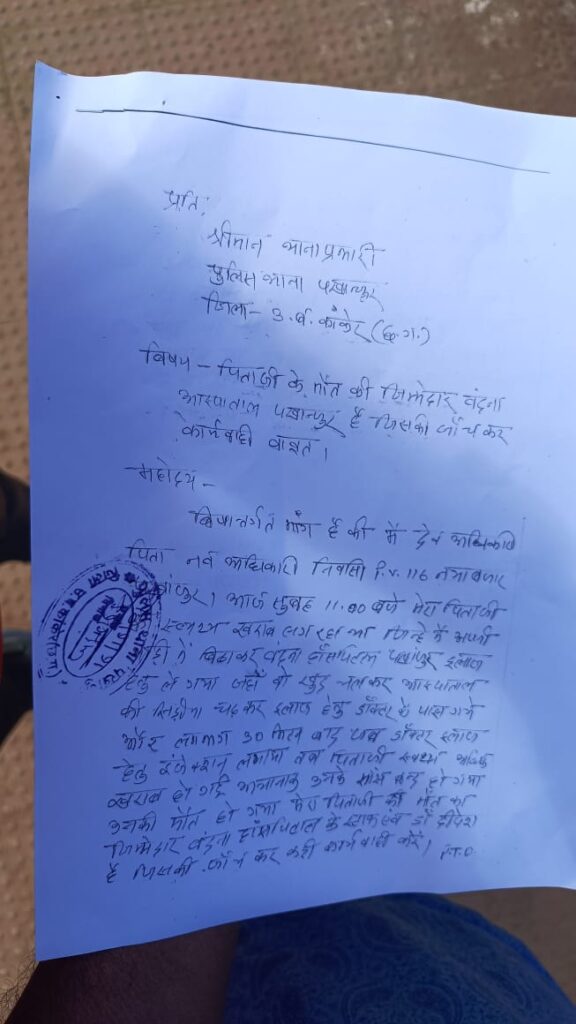 प्रति,
श्रीमान थाना प्रभारी
पुलिस थाना पखान्जूर
जिला - उ. ब. कांकेर (छ.ग.)
विषय - पिताजी के मौत की जिम्मेदार वंदना
अस्पताल पखान्जूर है जिसकी जाँच कर
कार्यवाही बाबत ।
महोदय -
विषयान्तर्गत मांग है की मैं देव अधिकारी
पिता नव अधिकारी निवासी P.V. 116 नया बाजार
आज सुबह 11.00 बजे मेरा पिताजी
स्वास्थ्य खराब लग रहा था जिन्हे मैं अपनी
में बिठाकर वंदना हॉस्पिटल पखांजुर इलाज
हेतु ले गया जहाँ वो खुद चलकर अस्पताल
की चढ़कर इलाज हेतु डॉक्टर के पास गये
और लगभग 30 मिनट बाद जब डॉक्टर इलाज
हेतु इंजेक्शन लगाया तब पिताजी स्वास्थ्य अधिक
खराब हो गई अचानक उनके सांस बन्द हो गया
उनकी मौत हो गया मेरा पिताजी की मौत का
जिम्मेदार वंदना हॉस्पिटल के स्टाफ एवं डॉ
है जिसकी जाँच कर कड़ी कार्यवाही करें।
P.T.O